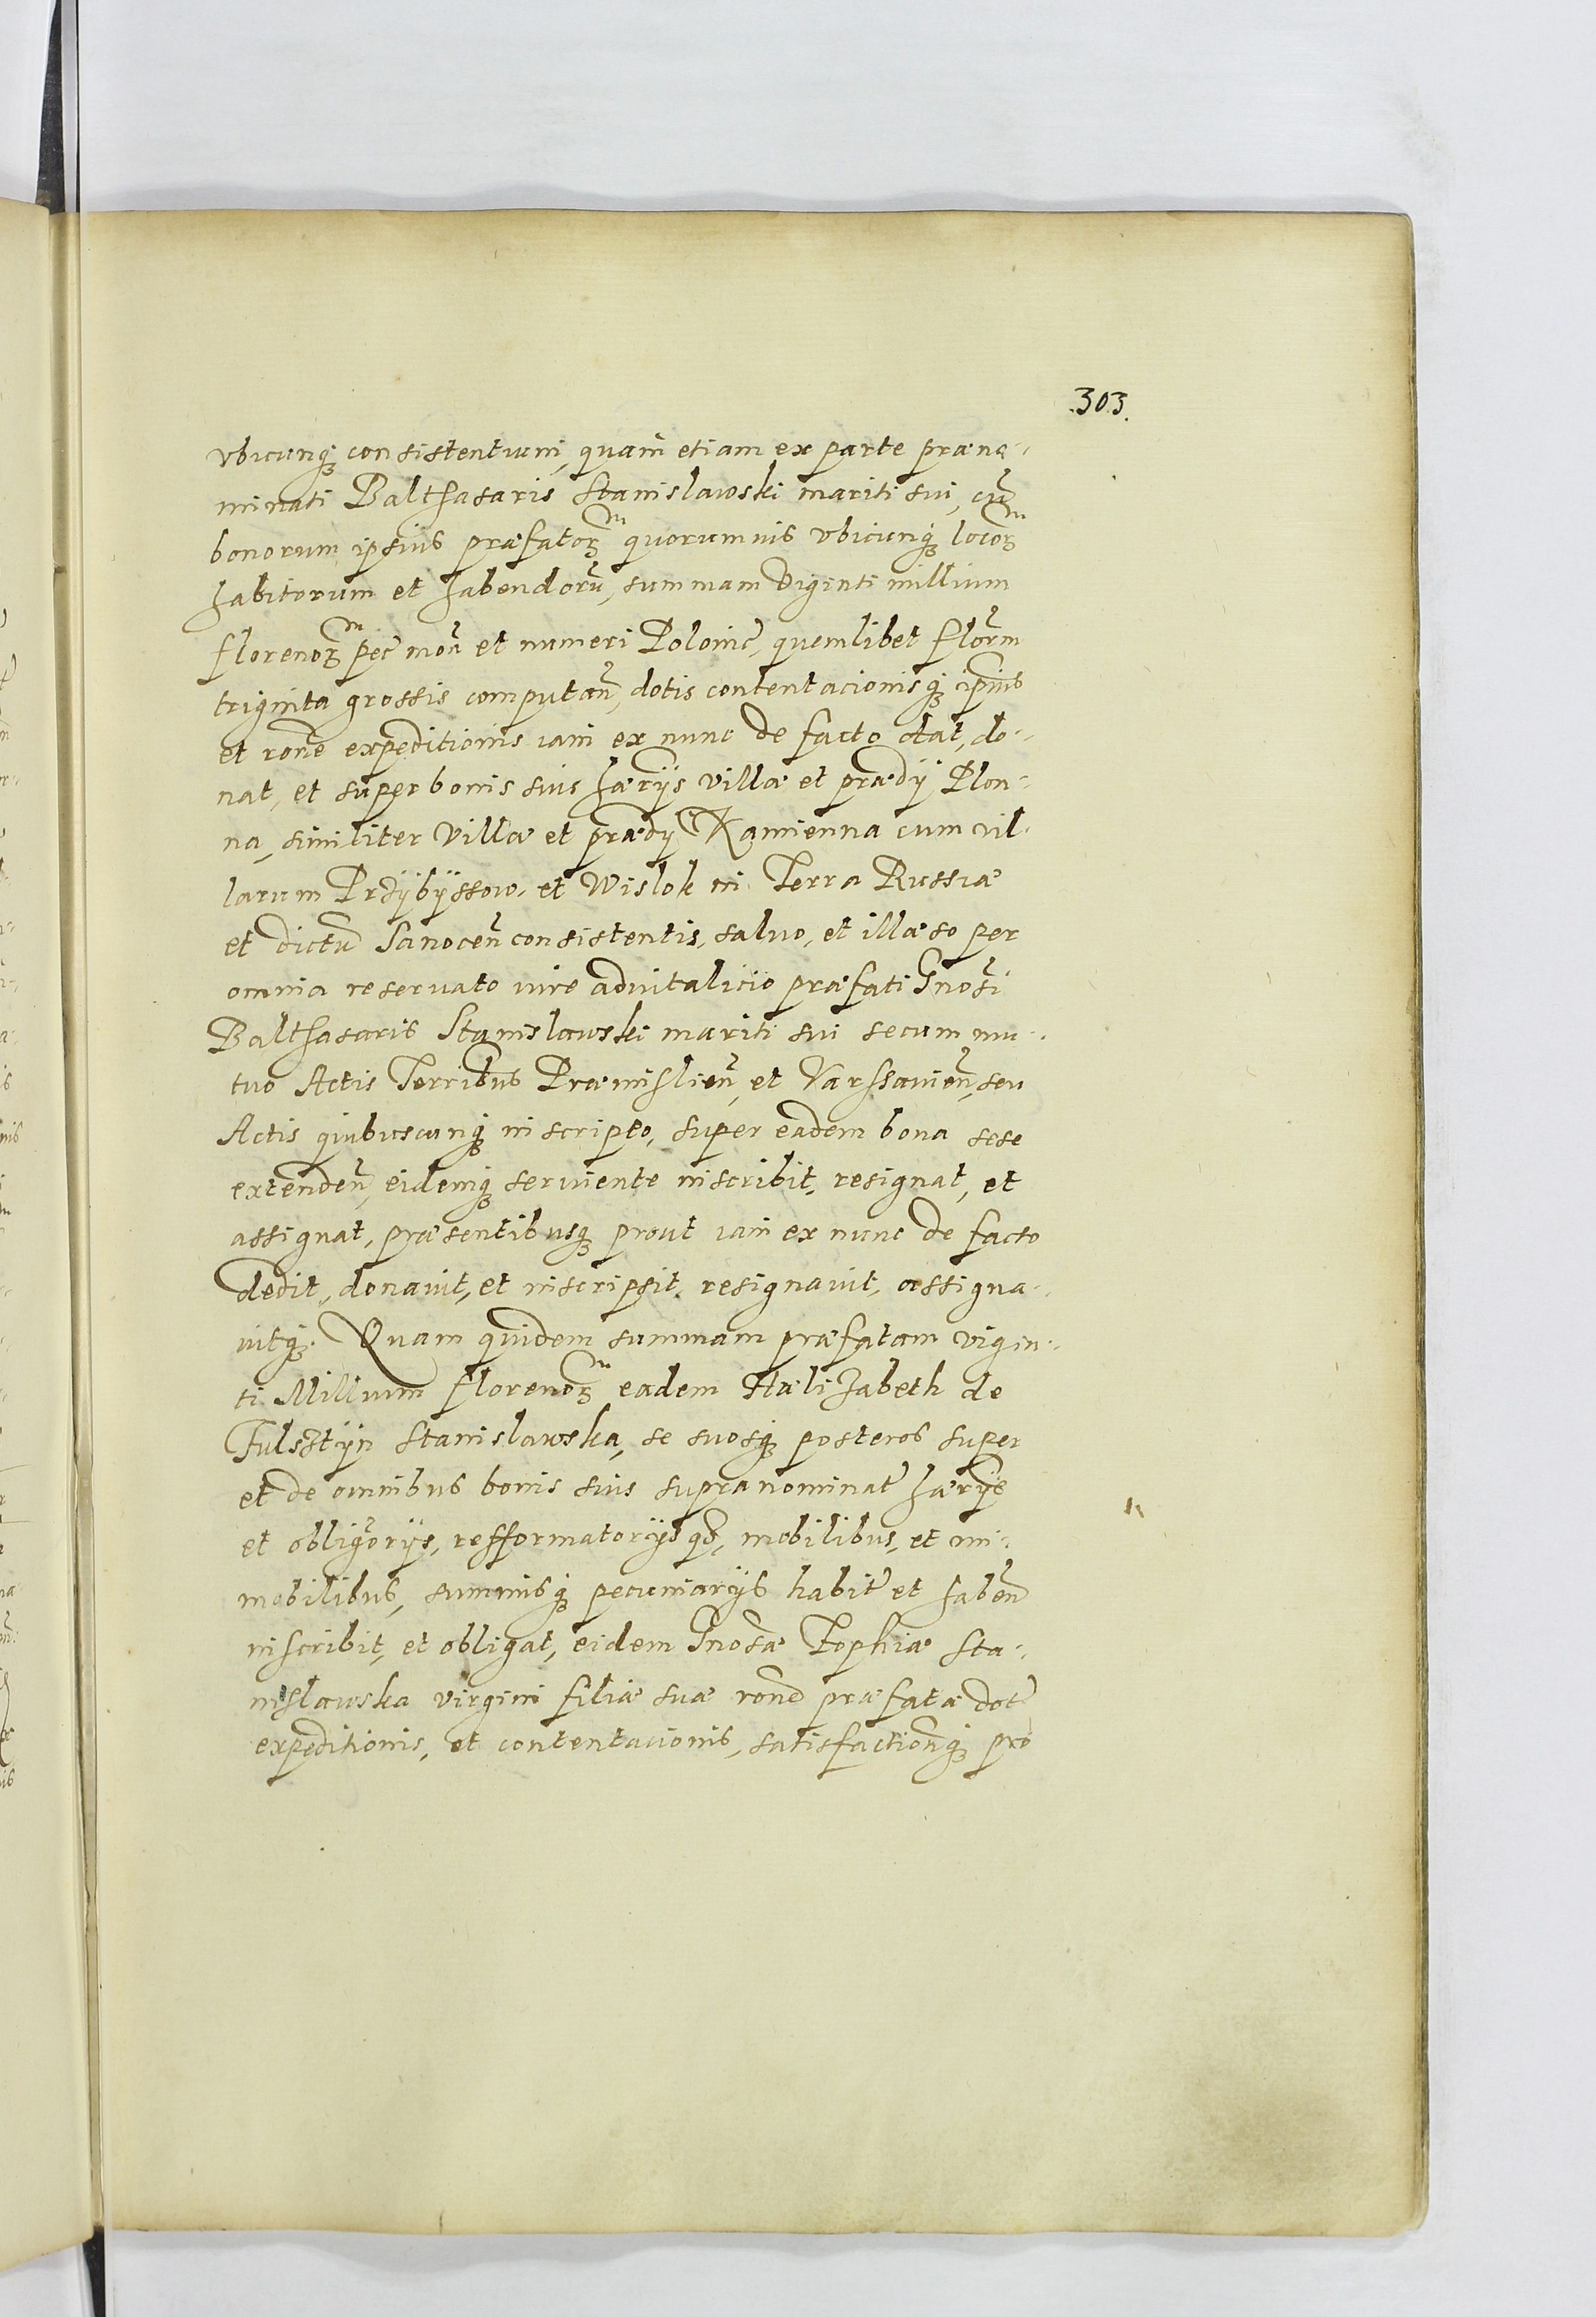 .303.
vbicunq₃ consistentium, quam etiam ex parte præno-
minati Balthasaris Stanislawski mariti sui, cũ
bonorum ipsius præfatorꝝ quorumuis vbicunq₃ locorꝝ
habitorum et habendorũ, summam viginti millium
florenorꝝ pec̃ moñ et numeri Polonic̃, quemlibet flor̃m
triginta grossis computañ, dotis contentacionisq₃ ipsius
et rone expeditionis iam ex nunc de facto dat, do-
nat, et super bonis suis hærÿs villæ et prædÿ Plon-
na, similiter villæ et prædÿ Kamienna cum vil-
larum Przÿbÿssow, et Wislok in Terra Russiæ
et dictũ Sanoceñ consistentis, saluo, et illæso per
omnia reseruato iure aduitalicio præfati Gnosi
Balthasaris Stanislawski mariti sui secum mu-
tuo Actis Terribus Præmislieñ, et Varssauieñ, seu
Actis quibuscunq₃ inscripto, super eadem bona sese
extendeñ, eidemq₃ seruiente inscribit, resignat, et
assignat, præsentibusq₃ prout iam ex nunc de facto
dedit, donauit, et inscripsit, resignauit, assigna-
uitq₃. Quam quidem summam præfatam vigin-
ti Millium florenorꝝ eadem Hælizabeth de
Fulsztÿn Stanislawska, se suosq₃ posteros super
et de omnibus bonis suis supranominat̃ hærÿs
et obligorÿs, refformatorÿsq₃, mobilibus, et im-
mobilibus, summisq₃ pecuniarÿs habit̃ et habeñ
inscribit, et obligat, eidem Gnosæ Zophiæ Sta-
nislawska virgini filiæ suæ rone præfatæ dot̃
expeditionis, et contentacionis, satisfactionq₃ pro